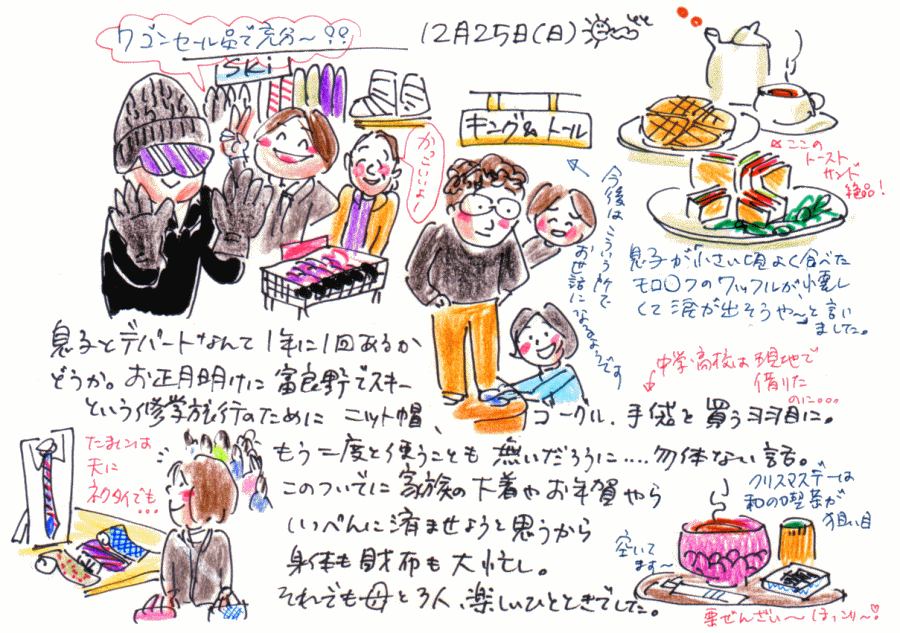 ワゴンセール品で充分〜♀♀
12月25日(日)
SKi
かっこいいよ!
キング&トール
今後はこういう所で
お世話になるようです
ここの
トースト
サンド
絶品!
息子が小さい頃よく食べた
モロ○フのワッフルが、懐し
くて涙が出そうや〜と言い
ました。
息子とデパートなんて1年に1回あるか
どうか。お正月明けに富良野でスキー
という修学旅行のために ニット帽、ゴーグル、手袋を買うヨヨ目に。
中学・高校は現地で
借りた
のに…
もう二度と使うことも無いだろうに....勿体ない話。
このついでに家族の下着やお年賀やら
いっぺんに済ませようと思うから
身体も財布も大忙し。
それでも母と3人、楽しいひとときでした。
たまには
夫に
ネクタイでも
...
クリスマスデーは
和の喫茶が
狙い目
空いて
ます〜
栗ぜんざい〜ほっこり〜